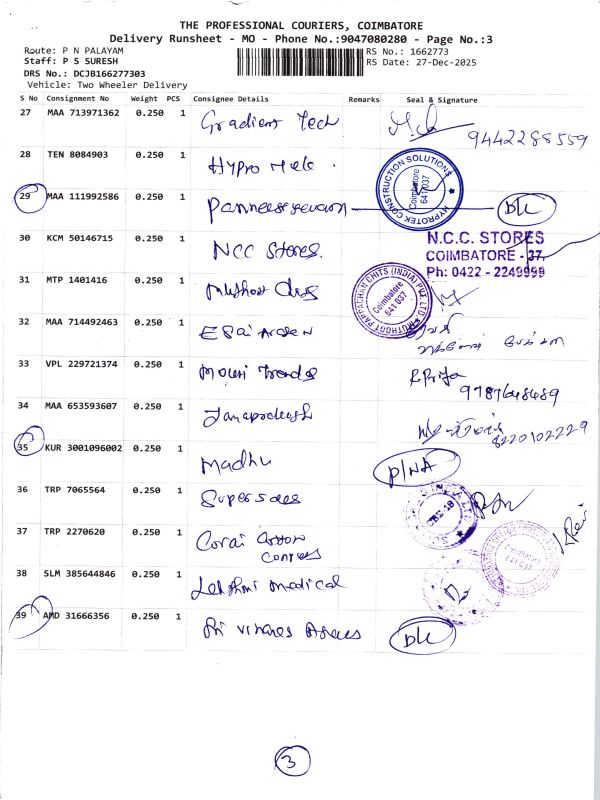 THE PROFESSIONAL COURIERS, COIMBATORE
Delivery Runsheet - MO - Phone No.:9047080280 - Page No.:3
Route: P N PALAYAM
Staff: P S SURESH
DRS No.: DCJB166277303
Vehicle: Two Wheeler Delivery
RS No.: 1662773
RS Date: 27-Dec-2025
S No Consignment No Weight PCS Consignee Details Remarks Seal & Signature
27 MAA 713971362 0.250 1 Gradient Tech 9442288559
28 TEN 8084903 0.250 1 Hypro Tek
HYPROTEK CONSTRUCTION SOLUTIONS
Coimbatore
641 037
29 MAA 111992586 0.250 1 Panneerselvam D/L
30 KCM 50146715 0.250 1 NCC Stores.
N.C.C. STORES
COIMBATORE - 37,
Ph: 0422 - 2249999
31 MTP 1401416 0.250 1 Muthoot
MUTHOOT PAPPACHAN CHITS (INDIA) PVT. LTD
Coimbatore
641 037
32 MAA 714492463 0.250 1
33 VPL 229721374 0.250 1 Mouri Trends R Priya
9787648489
34 MAA 653593607 0.250 1 Jamaprakash
8220102229
35 KUR 3001096002 0.250 1 Madhu P/NA
36 TRP 7065564 0.250 1 Super
37 TRP 2270620 0.250 1 Corai Cotton
38 SLM 385644846 0.250 1 Lakshmi Medical
39 AMD 31666356 0.250 1 Sri D/L
3